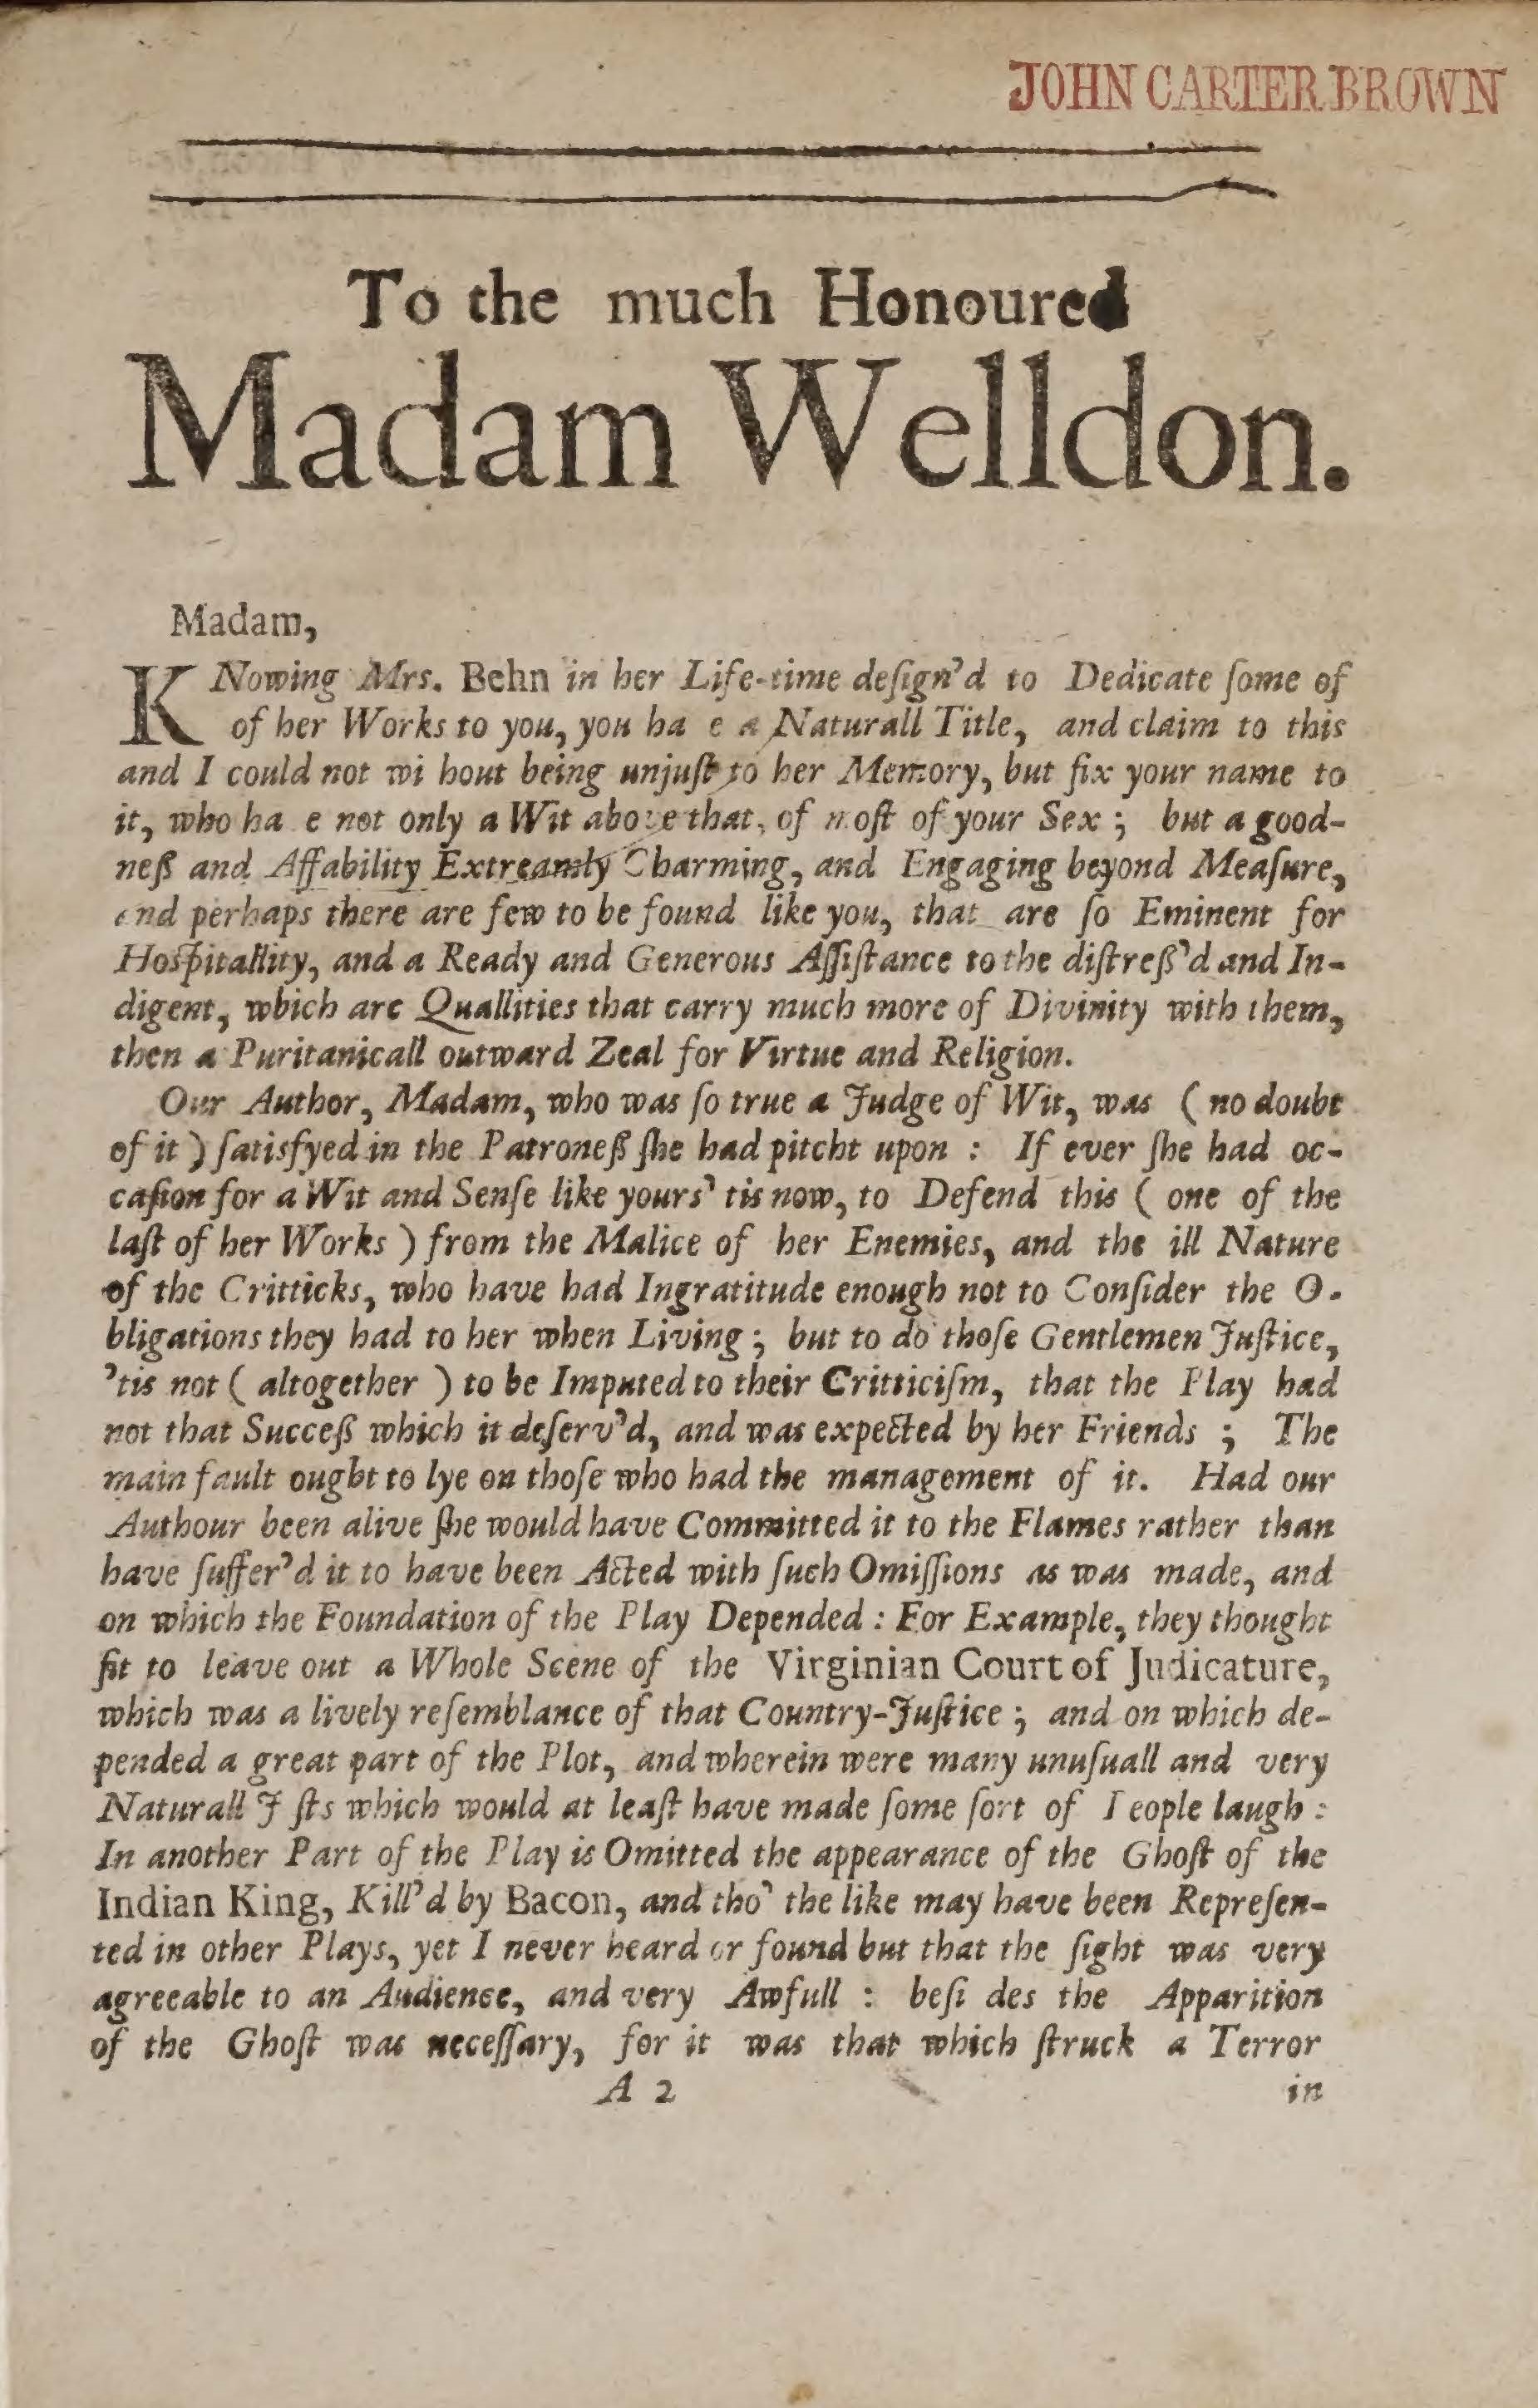 JOHN CARTER BROWN
To the much Honoured
Madam Welldon.
Madam,
KNowing Mrs. Behn in her Life-time deſign'd to Dedicate ſome of
of her Works to you, you ha e a Naturall Title, and claim to this
and I could not wi hout being unjuſt to her Memory, but fix your name to
it, who ha e not only a Wit above that, of moſt of your Sex ; but a good-
neß and Affability Extreamly Charming, and Engaging beyond Meaſure,
and perhaps there are few to be found like you, that are ſo Eminent for
Hoſpitallity, and a Ready and Generous Aſſiſtance to the diſtreß'd and In-
digent, which are Quallities that carry much more of Divinity with them,
then a Puritanicall outward Zeal for Virtue and Religion.
Our Author, Madam, who was ſo true a Judge of Wit, was ( no doubt
of it ) ſatisfyed in the Patroneß ſhe had pitcht upon : If ever ſhe had oc-
caſion for a Wit and Senſe like yours' tis now, to Defend this ( one of the
laſt of her Works ) from the Malice of her Enemies, and the ill Nature
of the Critticks, who have had Ingratitude enough not to Conſider the O-
bligations they had to her when Living ; but to do thoſe Gentlemen Juſtice,
'tis not ( altogether ) to be Imputed to their Critticiſm, that the Play had
not that Succeß which it deſerv'd, and was expected by her Friends ; The
main fault ought to lye on thoſe who had the management of it. Had our
Authour been alive ſhe would have Committed it to the Flames rather than
have ſuffer'd it to have been Acted with ſuch Omiſſions as was made, and
on which the Foundation of the Play Depended : For Example, they thought
fit to leave out a Whole Scene of the Virginian Court of Judicature,
which was a lively reſemblance of that Country-Juſtice ; and on which de-
pended a great part of the Plot, and wherein were many unuſuall and very
Naturall J ſts which would at leaſt have made ſome ſort of People laugh :
In another Part of the Play is Omitted the appearance of the Ghoſt of the
Indian King, Kill'd by Bacon, and tho' the like may have been Repreſen-
ted in other Plays, yet I never heard or found but that the ſight was very
agreeable to an Audience, and very Awfull : beſi des the Apparition
of the Ghoſt was neceſſary, for it was that which ſtruck a Terror
A 2 in